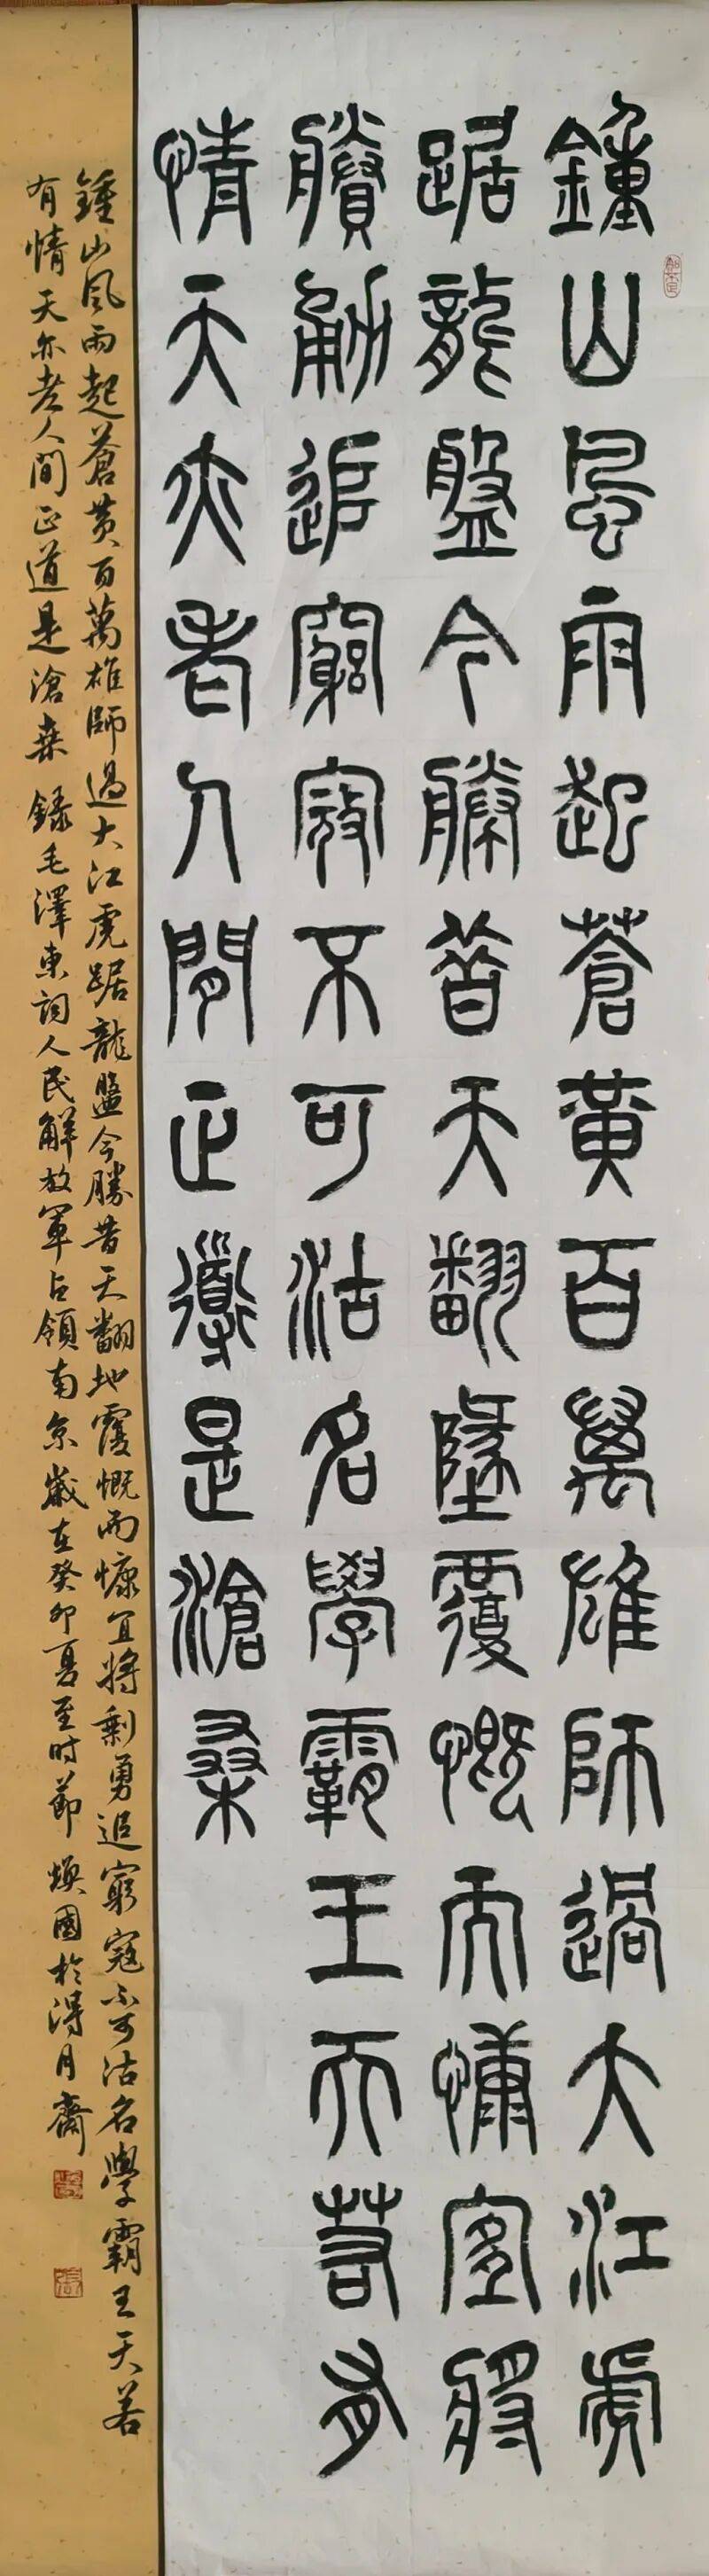 鍾山風雨起蒼黃百萬雄師過大江虎
踞龍盤今勝昔天翻地覆慨而慷宜將
賸勇追窮寇不可沽名學霸王天若有
情天亦老人間正道是滄桑
鍾山風雨起蒼黃百萬雄師過大江虎踞龍盤今勝昔天翻地覆慨而慷宜將剩勇追窮寇不可沽名學霸王天若
有情天亦老人間正道是滄桑 錄毛澤東詞人民解放軍占領南京歲在癸卯夏至时節 煥國於得月齋